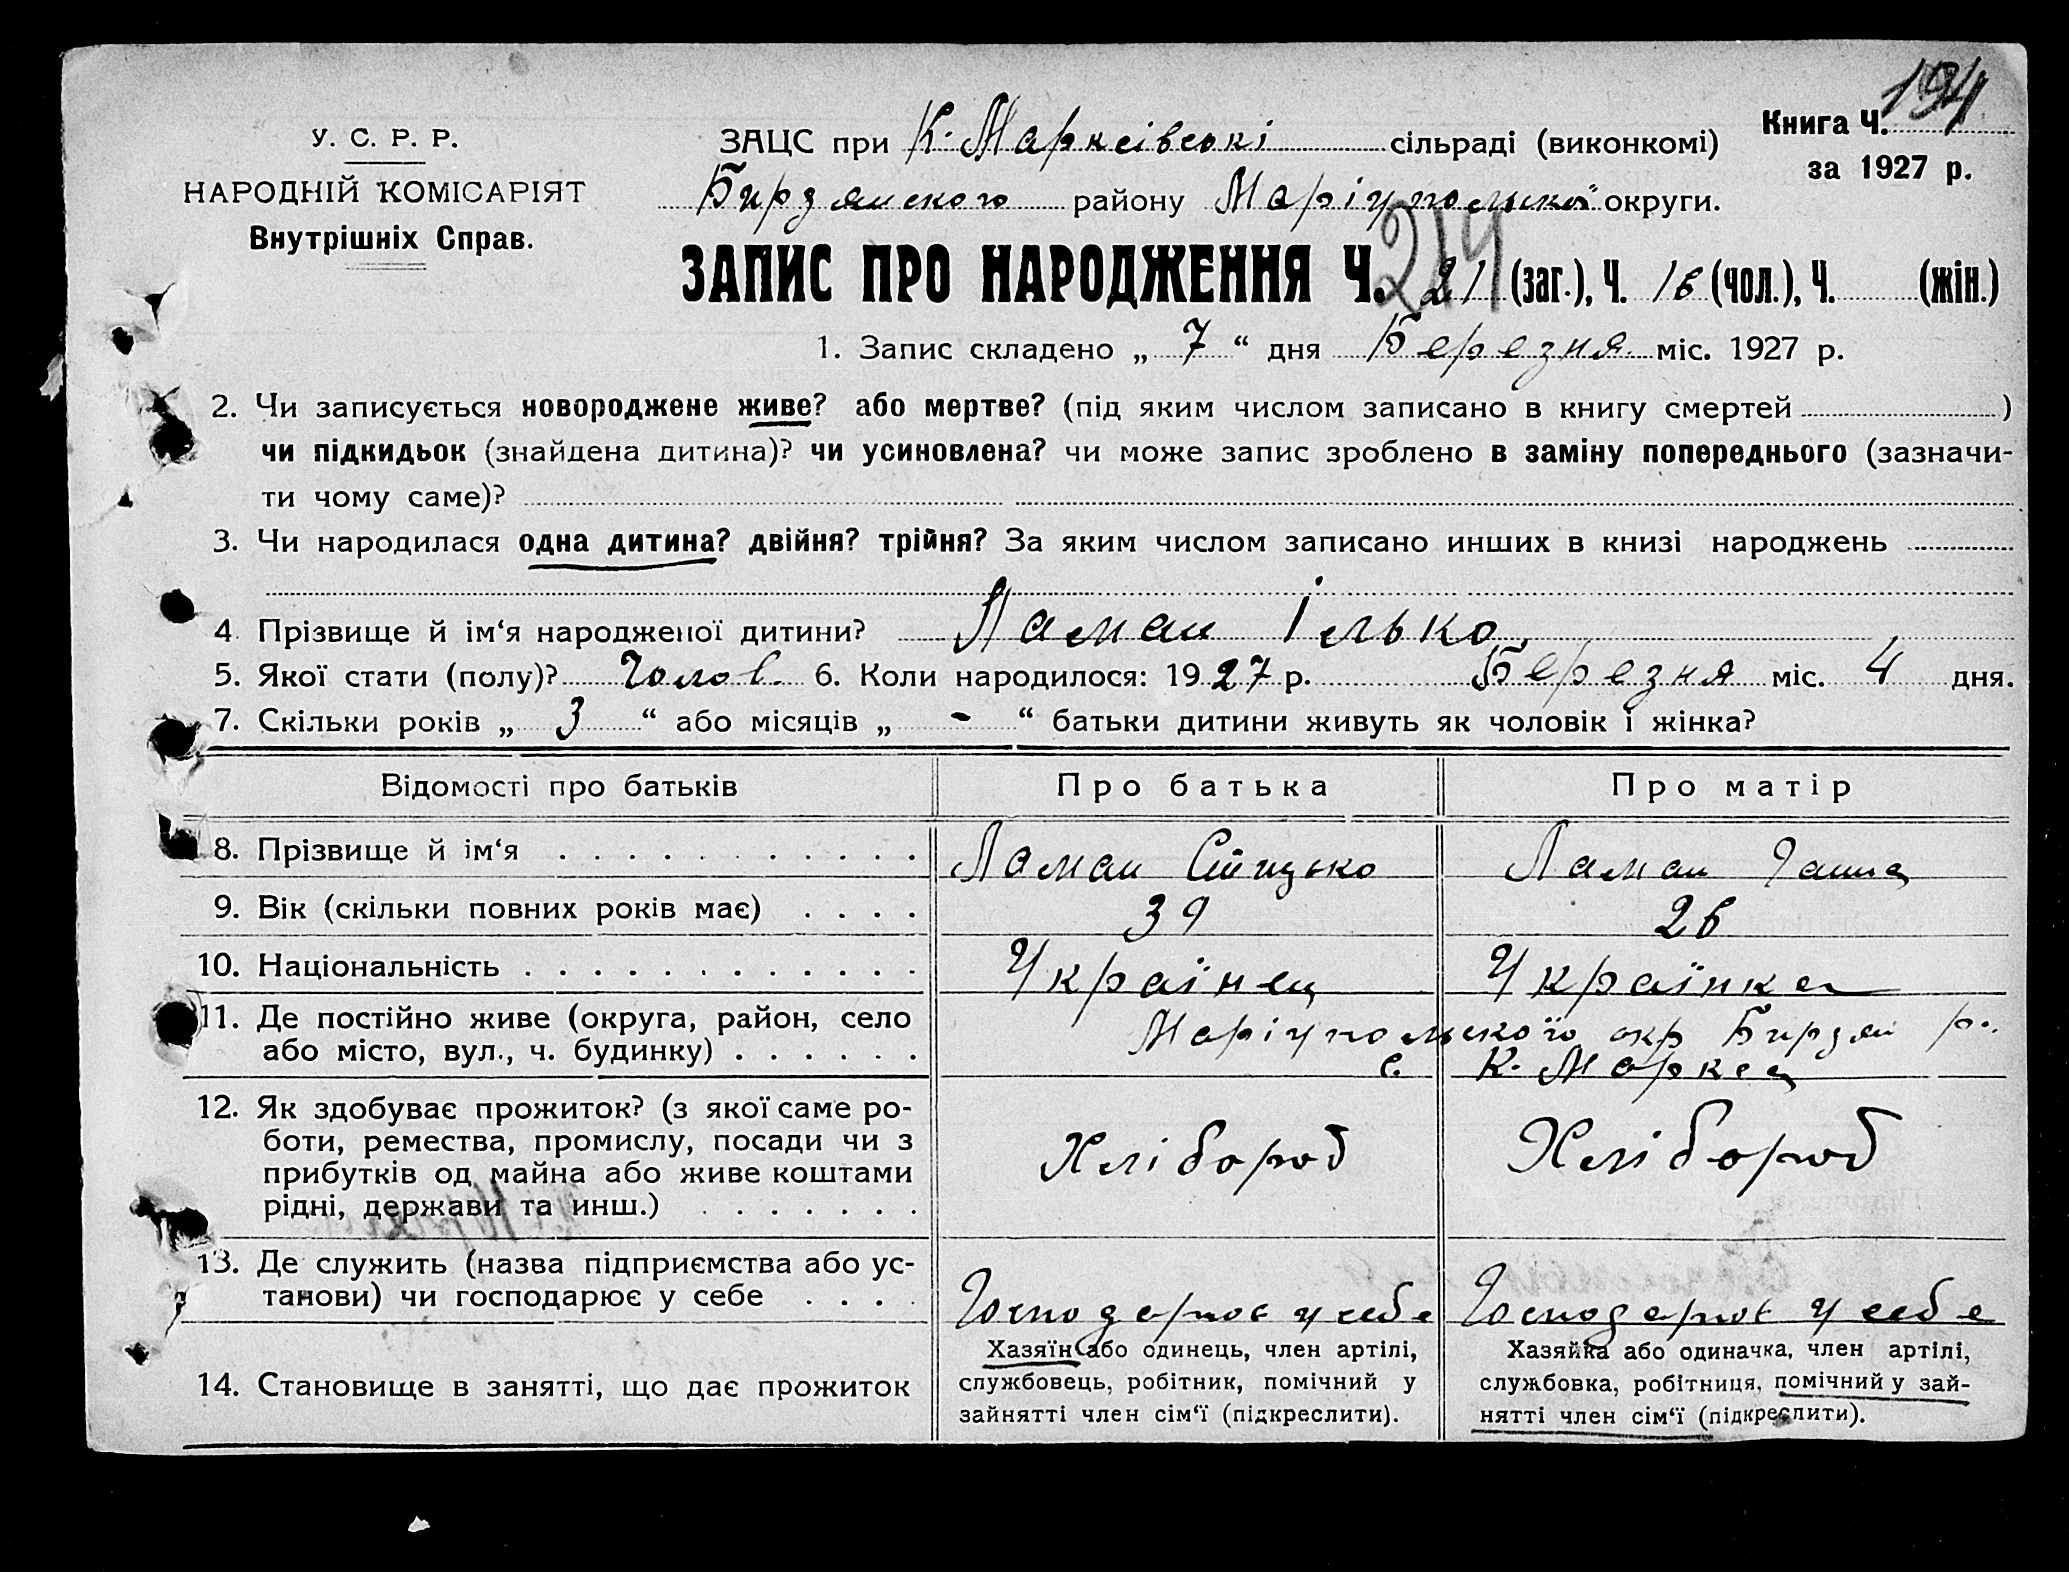 194
У. С. Р. Р.
НАРОДНІЙ КОМІСАРІЯТ
Внутрішніх Справ.
ЗАЦС при К. Марксівські сільраді (виконкомі)
Книга Ч.
за 1927 р.
Бирдянского району Маріупольської округи.
214
ЗАПИС ПРО НАРОДЖЕННЯ Ч. 21 (заг.), Ч. 16 (чол.), Ч. (жін.)
1. Запис складено „ 7 “ дня Березня міс. 1927 р.
2. Чи записується новороджене живе? або мертве? (під яким числом записано в книгу смертей )
чи підкидьок (знайдена дитина)? чи усиновлена? чи може запис зроблено в заміну попереднього (зазначи-
ти чому саме)?
3. Чи народилася одна дитина? двійня? трійня? За яким числом записано инших в книзі народжень
4. Прізвище й ім‘я народженої дитини? Ламан Ілько
5. Якої стати (полу)? Чолов. 6. Коли народилося: 1927 р. Березня міс. 4 дня.
7. Скільки років „ 3 “ або місяців „ - “ батьки дитини живуть як чоловік і жінка?
Відомості про батьків Про батька Про матір
8. Прізвище й ім‘я . . . . . . . . . . . Ламан Ламан
9. Вік (скільки повних років має) . . . . 39 26
10. Національність . . . . . . . . . . . . Українец Українка
11. Де постійно живе (округа, район, село
або місто, вул., ч. будинку) . . . . . .
Маріупольского окр Бирдян р.
с. К. Маркса
12. Як здобуває прожиток? (з якої саме ро-
боти, ремества, промислу, посади чи з
прибутків од майна або живе коштами
рідні, держави та инш.) . . . . . . .
Хлібороб Хлібороб
13. Де служить (назва підприємства або ус-
танови) чи господарює у себе . . . .
Господарює у себе Господарює у себе
14. Становище в занятті, що дає прожиток
Хазяїн або одинець, член артілі,
службовець, робітник, помічний у
зайнятті член сім‘ї (підкреслити).
Хазяйка або одиначка, член артілі,
службовка, робітниця, помічний у зай-
нятті член сім‘ї (підкреслити).